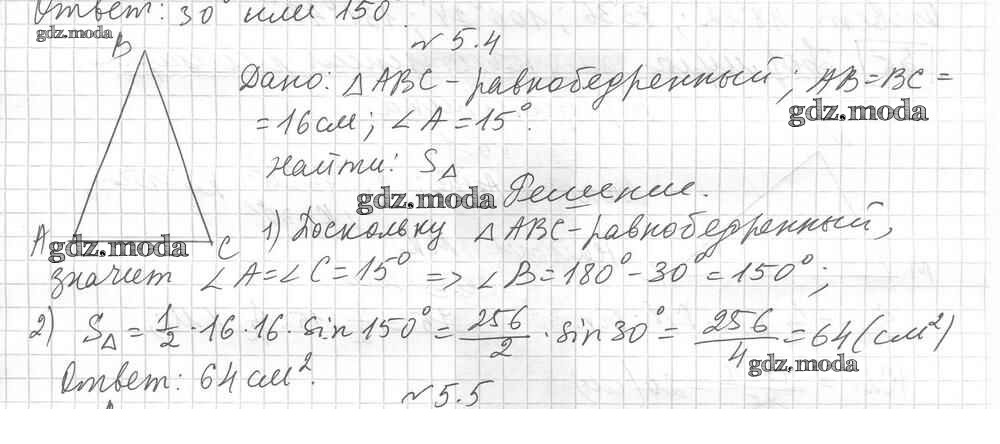 Ответ: 30° или 150°.
gdz.moda
№ 5.4
B
Дано: △ABC - равнобедренный; AB=BC=
gdz.moda
=16см; ∠A=15°.
Найти: S△
gdz.moda
Решение.
A
C
gdz.moda
1) Поскольку △ABC - равнобедренный,
значит ∠A=∠C=15° => ∠B=180°-30°=150°;
2) S△ = 1/2 · 16 · 16 · sin 150° = 256/2 · sin 30° = 256/4 = 64 (см²)
gdz.moda
Ответ: 64 см².
№ 5.5